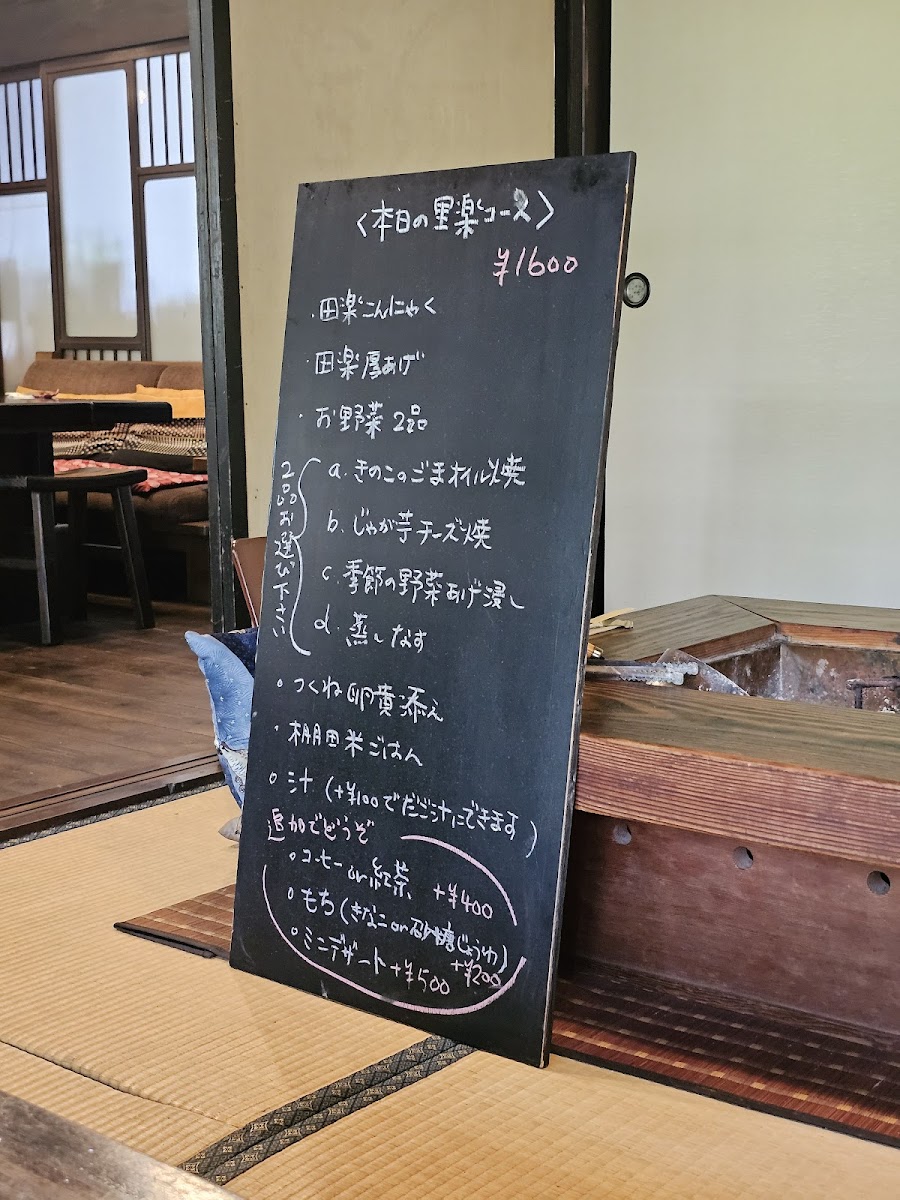 〈本日の里楽コース〉
¥1600
・田楽こんにゃく
・田楽厚あげ
・お野菜2品
2品お選び下さい
a.きのこのごまオイル焼
b.じゃが芋チーズ焼
c.季節の野菜あげ浸し
d.蒸しなす
○つくね卵黄添え
・棚田米ごはん
○汁(+¥100でだご汁にできます)
追加でどうぞ
○コーヒー or 紅茶 +¥400
○もち(きなこor砂糖じょうゆ)
+¥200
○ミニデザート+¥500